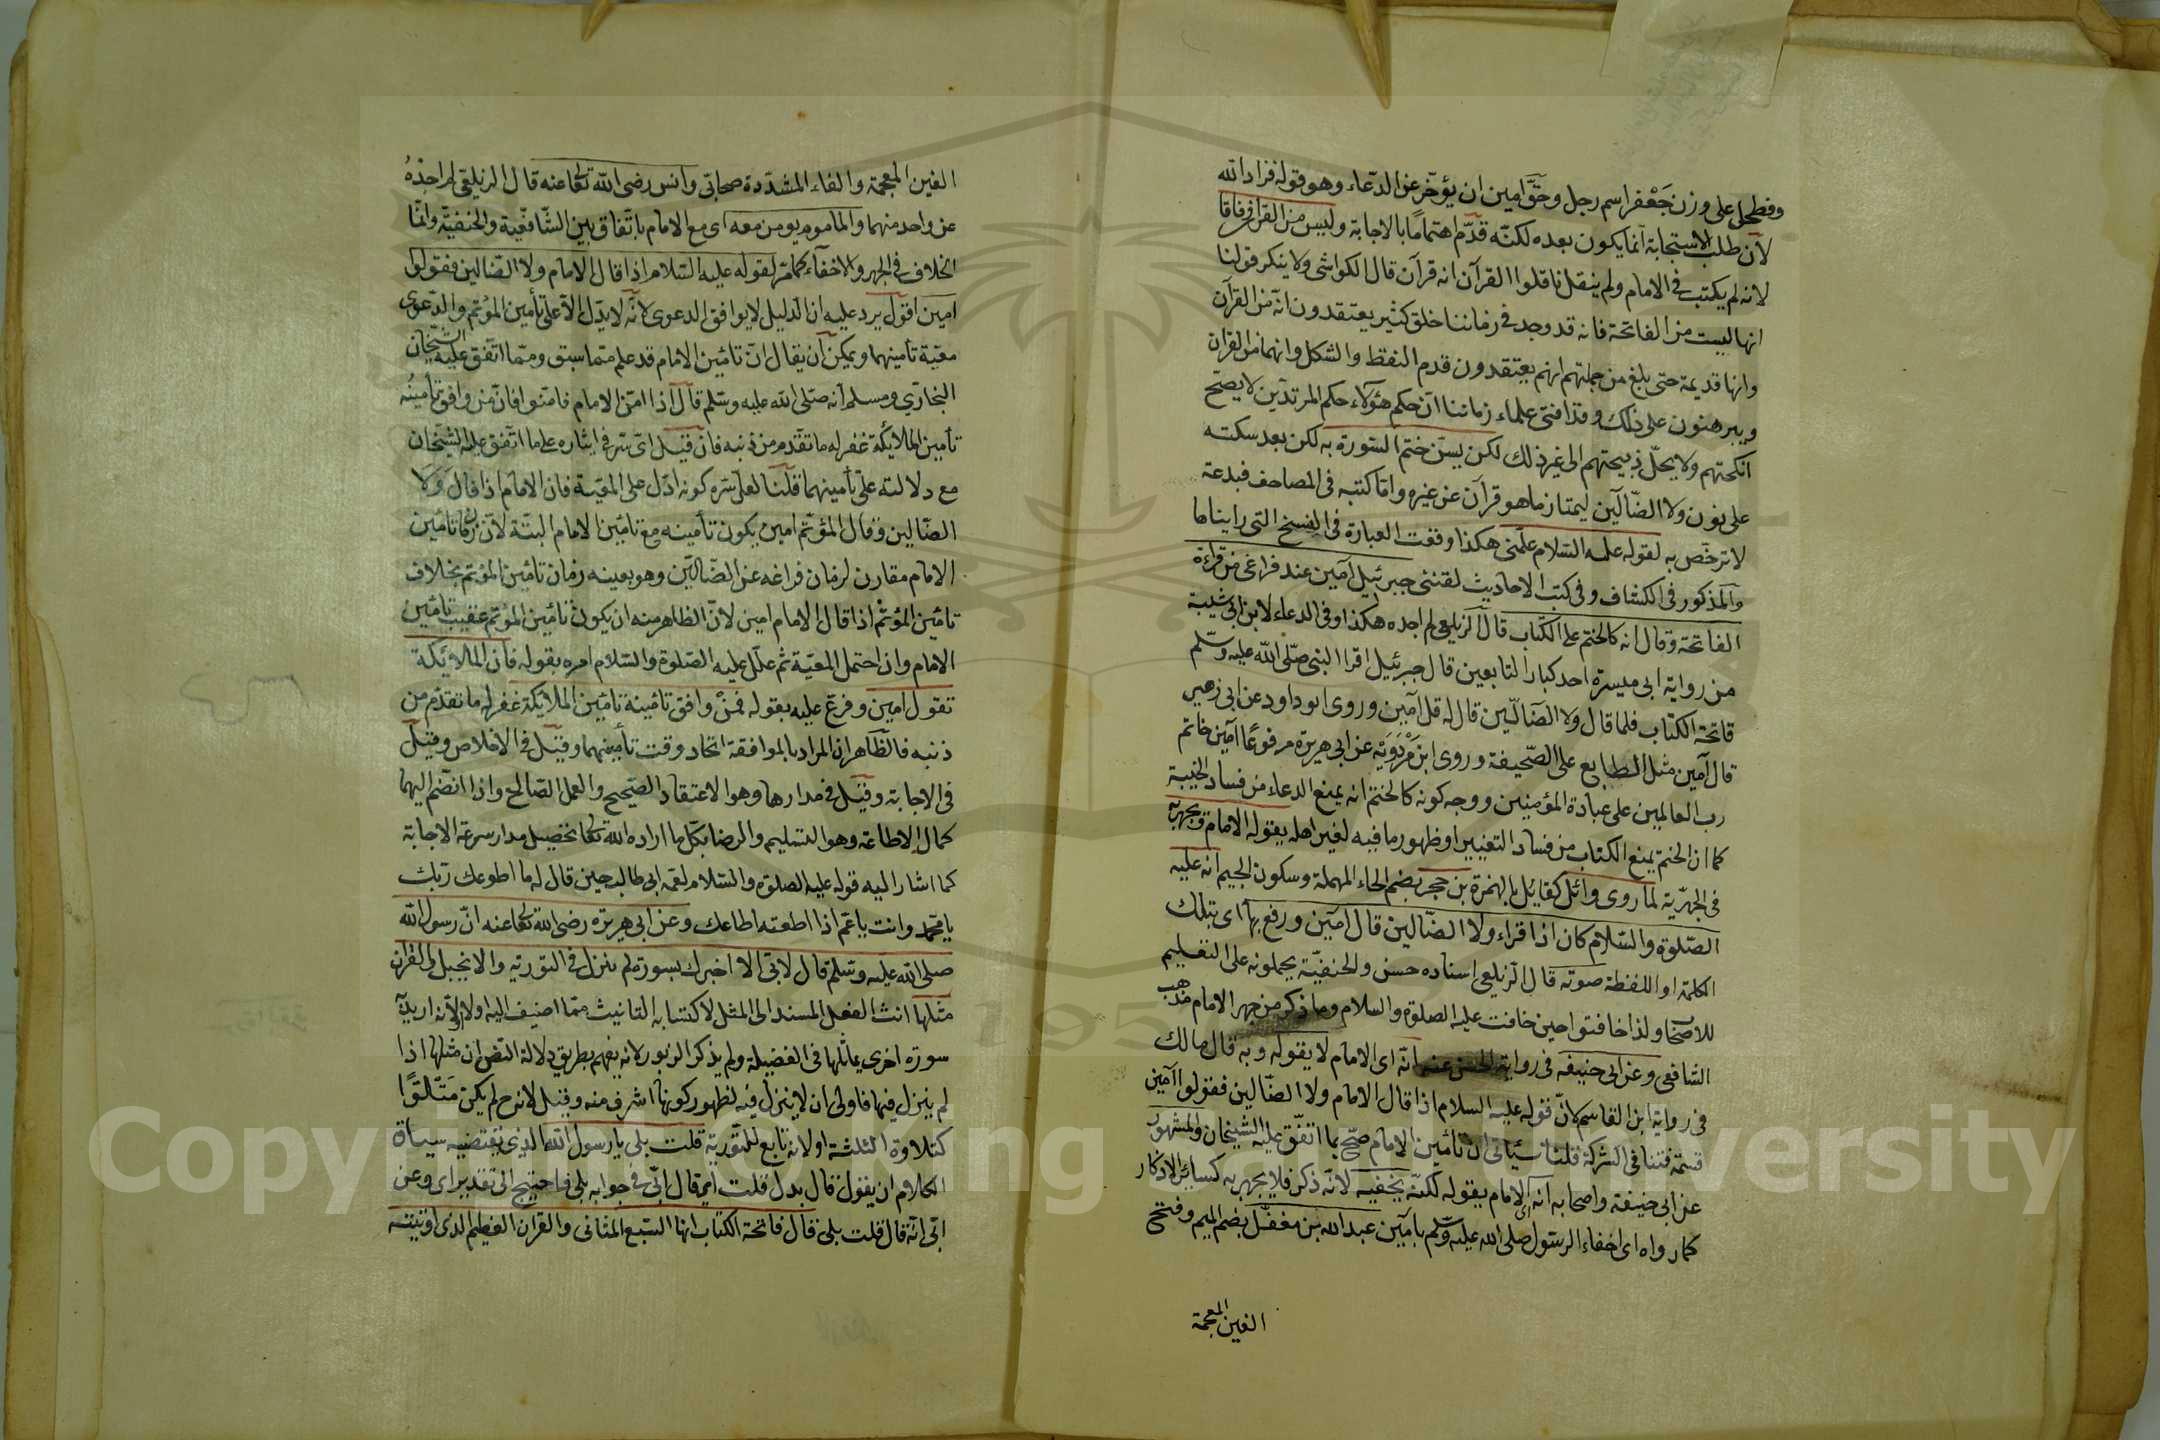 وفطحل على وزن جَعْفر اسم رجل وحَقَّ امين ان يؤخّر عن الدّعاء وهو قوله فزاد الله
لأن طلب الاستجابة انما يكون بعده لكنّه قدّم اهتمامًا بالاجابة وليس من القرآن وفاقا
لانه لم يكتب في الامام ولم ينقل ناقلوا القرآن انه قرآن قال الكواشى ولا ينكر قولنا
انها ليست من الفاتحة فانه قد وجد في زماننا خلق كثير يعتقدون انّه من القرآن
وانها قديمة حتى بلغ من جهلتهم انهم يعتقدون قدم النقط والشكل وانهما من القرآن
ويبرهنون على ذلك وقد افتى علماء زماننا انّ حكم هؤلاء حكم المرتدّين لا يصحّ
انكحتهم ولا يحلّ ذبيحتهم الى غير ذلك لكن يسنّ ختم السّورة به لكن بعد سكتة
على نون ولا الضّالّين ليمتاز ما هو قرآن عن غيره وامّا كتبه في المصاحف فبدعة
لا ترخّص به لقوله عليه السّلام علّمنى هكذا وقعت العبارة في النسخ التى رايناها
والمذكور في الكشاف وفي كتب الاحاديث لقننى جبرئيل آمين عند فراغى من قراءة
الفاتحة وقال انه كالختم على الكتاب قال الزيلعى لم اجده هكذا وفي الدعاء لابن ابى شيبة
من رواية ابى ميسرة احد كبار التابعين قال جبرئيل اقرأ النبى صلّى الله عليه وسلّم
فاتحة الكتاب فلما قال ولا الضّالّين قال له قل آمين وروى ابو داود عن ابى زهير
قال آمين مثل الطابع على الصّحيفة وروى ابن مَرْدَوَيْه عن ابى هريرة مرفوعًا آمين خاتم
رب العالمين على عبادة المؤمنين ووجه كونه كالختم انه يمنع الدعاء من فساد الخيبة
كما ان الختم يمنع الكتاب من فساد التغيير او ظهور ما فيه لغير اهله يقوله الامام ويجهر به
في الجهريّة لما روى وائل كقائل بالهمزة بن حجر بضم الحاء المهملة وسكون الجيم انه عليه
الصّلوة والسّلام كان اذا قراء ولا الضّالين قال آمين ورفع بها اى بتلك
الكلمة او اللفظة صوته قال الزيلعى اسناده حسن والحنفيّة يحملونه على التعليم
للاصحاب ولذا خافتوا حين خافت عليه الصلوة والسلام وما ذكر من جهر الامام مذهب
الشافعى وعن ابى حنيفه في رواية الحسن عنه انّه اى الامام لا يقوله وبه قال مالك
في رواية ابن القاسم كانّ قوله عليه السلام اذا قال الامام ولا الضّالين فقولوا آمين
قسمة فتنافى الشركة قلنا سيأتى ان تأمين الامام صحّ بما اتفق عليه الشيخان والمشهور
عن ابى حنيفة واصحابه انه اى الامام يقوله لكنّه يخفيه لانّه ذكر فلا يجهر به كسائر الاذكار
كما رواه اى اخفاء الرسول صلى الله عليه وسلّم بآمين عبد الله بن مغفّل بضم الميم وفتح
الغين المعجمة
الغين المعجمة والفاء المشدّدة صحابىّ وانس رضى الله تعالى عنه قال الزيلعى لم اجدهُ
عن واحد منهما والماموم يومن معه اى مع الامام باتّفاق بين الشّافعيّة والحنفيّة وانّما
الخلاف في الجهر والاخفاء كما مرّ لقوله عليه السّلام اذا قال الامام ولا الضّالين فقولوا
امين اقول يرد عليه ان الدليل لا يوافق الدعوى لانّه لا يدّل الّا على تأمين المؤتم والدّعوى
معيّة تأمينهما ويمكن ان يقال انّ تأمين الامام قد علم مما سبق وممّا اتّفق عليه الشيخان
البخارّي ومسلم انه صلّى الله عليه وسلّم قال اذا امّن الامام فامنوا فانّ من وافق تأمينُه
تأمين الملايكة غفر له ما تقدّم من ذنبه فان قيل اىّ سّر في ايثاره على ما اتّفق عليه الشيخان
مع دلالته على تأمينهما قلنا لعلّ سّره كونه ادّل على المعيّة فان الامام اذا قال وَلَا
الضّالين وقال المؤتّم امين يكون تأمينه مع تامّين الامام البتّة لانّ زمان تامّين
الامام مقارن لزمان فراغه عن الضّالّين وهو بعينه زمان تامّين المؤتم بخلاف
تامّين المؤتّم اذا قال الامام امين لانّ الظاهر منه ان يكون تأمّين المؤتم عقيب تامّين
الامام وان احتمل المعيّة ثم علّل عليه الصّلوة والسّلام امره بقوله فان الملائكة
تقول امين وفرع عليه بقوله فمنْ وافق تامّينه تامّين الملايكة غفر له ما تقدّم من
ذنبه فالظّاهر ان المراد بالموافقة اتحاد وقت تأمينهما وقيل في الاخلاص وقيل
في الاجابة وقيل في مدارها وهو الاعتقاد الصّحيح والعمل الصّالح واذا انضّم اليهما
كمال الاطاعة وهو التسليم والرضا بكلّ ما اراده الله تعالى تحصيل مدار سرعة الاجابة
كما اشار اليه قوله عليه الصلوة والسّلام لعمّه ابى طالب حين قال له ما اطوعك ربّك
يا محمّد وانت يا عمّ اذا اطعته اطاعك وعن ابى هريرّه رضى الله تعالى عنه انّ رسول الله
صلى الله عليه وسّلم قال لابّى الا اخبرك بسورة لم ينزل في التوريه والانجيل والقران
مثلها انث الفعل المسند الى المثل لاكتسابه التانيث ممّا اضيف اليه او لانّه اريد به
سوره اخرى يماثلها في الفضيلة ولم يذكر الزبور لانه يفهم بطريق دلالة النّص ان مثلها اذا
لم ينزل فيها فاولى ان لا ينزل فيه لظهور كونها اشرف منه وقيل لانه ح لم يكن مَتْلُوًّا
كتلاوة الثلثة او لانه تابع للتّورية قلت بلى يا رسول الله الذى يقتضيه سياق
الكلام ان يقول قال بدل قلت اى قال ابّى في جوابه بلى فاحتيج الى تقدير اى وعن
ابّى انّه قال قلت بلى قال فاتحة الكتاب انها السّبع المثانى والقران العظيم الذى اوتيته
Copyright © King Saud University
1957